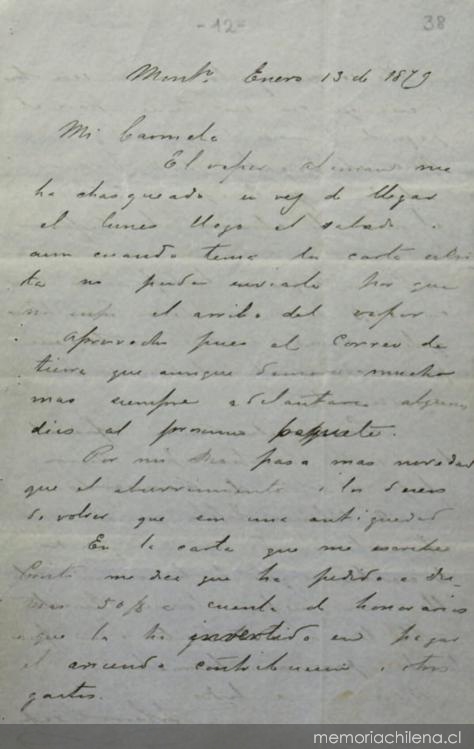 -12-
38
Montº. Enero 13 de 1879
Mi Carmela
El vapor aleman me
ha chasqueado en vez de llegar
el lunes llego el sabado i
aun cuando tenia la carta escri
ta no pude enviarla por que
no supe el arribo del vapor
Aprovecho pues el correo de
tierra que aunque demora mucho
mas siempre adelantara algunos
dias al procsimo paquete.
Por mi pasa mas novedad
que el aburrimiento i los deseos
de volver que son una antiguedad
En la carta que me escribe
me dice que ha pedido a
50 $ a cuenta de honorarios
que la ha invertido en pagar
el arriendo contribucion i otros
gastos.
memoriachilena.cl